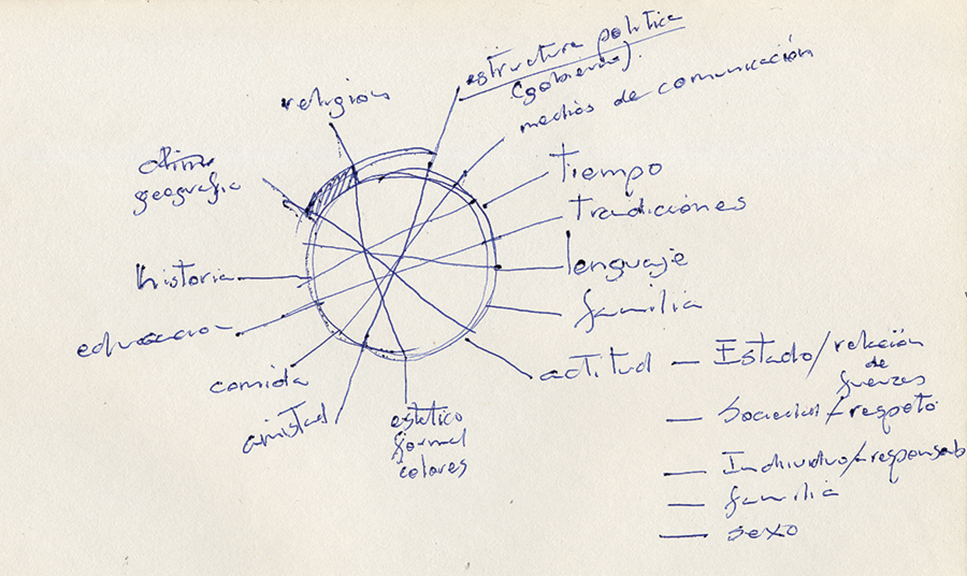 religion
estructura politica
(gobierno).
medios de comunicación
clima
geografia
tiempo
tradiciones
lenguaje
historia
familia
educacion
comida
amistad
estetico
formal
colores
actitud — Estado/relación
de
fuerzas
— Sociedad/respeto
— Individuo/responsab
— familia
— sexo